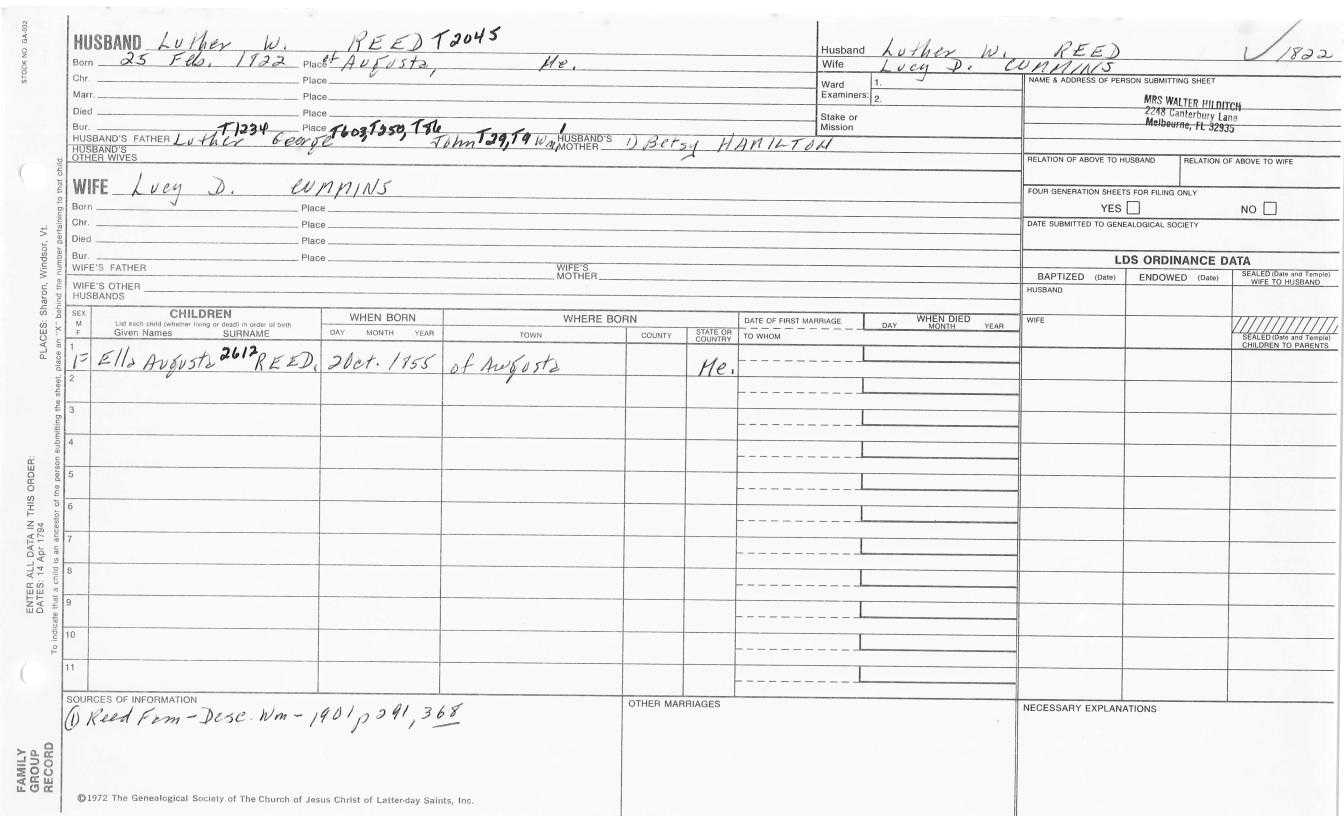 STOCK NO. GA-932
HUSBAND Luther W. REED T2045
Born 25 Feb. 1822 Place of Augusta, Me.
Chr. Place
Marr. Place
Died Place
Bur. Place
HUSBAND'S FATHER Luther T1234 George T603, T250, T86 John T29, T9 Wm. HUSBAND'S MOTHER 1) Betsy HAMILTON
HUSBAND'S OTHER WIVES
WIFE Lucy D. CUMMINS
Born Place
Chr. Place
Died Place
Bur. Place
WIFE'S FATHER WIFE'S MOTHER
WIFE'S OTHER HUSBANDS
Husband Luther W. REED 1822
Wife Lucy D. CUMMINS
Ward Examiners: 1. 2.
Stake or Mission
NAME & ADDRESS OF PERSON SUBMITTING SHEET
MRS WALTER HILDITCH
2248 Canterbury Lane
Melbourne, FL 32935
RELATION OF ABOVE TO HUSBAND RELATION OF ABOVE TO WIFE
FOUR GENERATION SHEETS FOR FILING ONLY
YES NO
DATE SUBMITTED TO GENEALOGICAL SOCIETY
LDS ORDINANCE DATA
BAPTIZED (Date) ENDOWED (Date) SEALED (Date and Temple) WIFE TO HUSBAND
HUSBAND
WIFE
SEALED (Date and Temple) CHILDREN TO PARENTS
SEX M F
CHILDREN
List each child (whether living or dead) in order of birth
Given Names SURNAME
WHEN BORN
DAY MONTH YEAR
WHERE BORN
TOWN COUNTY STATE OR COUNTRY
DATE OF FIRST MARRIAGE
TO WHOM
WHEN DIED
DAY MONTH YEAR
1 F Ella Augusta 2612 REED. 2 Oct. 1855 of Augusta Me.
2
3
4
5
6
7
8
9
10
11
SOURCES OF INFORMATION
(1) Reed Fam - Desc. Wm - 1901 p 291, 368
OTHER MARRIAGES
NECESSARY EXPLANATIONS
©1972 The Genealogical Society of The Church of Jesus Christ of Latter-day Saints, Inc.
FAMILY GROUP RECORD
ENTER ALL DATA IN THIS ORDER:
DATES: 14 Apr 1794
PLACES: Sharon, Windsor, Vt.
To indicate that a child is an ancestor of the person submitting the sheet, place an "X" behind the number pertaining to that child.